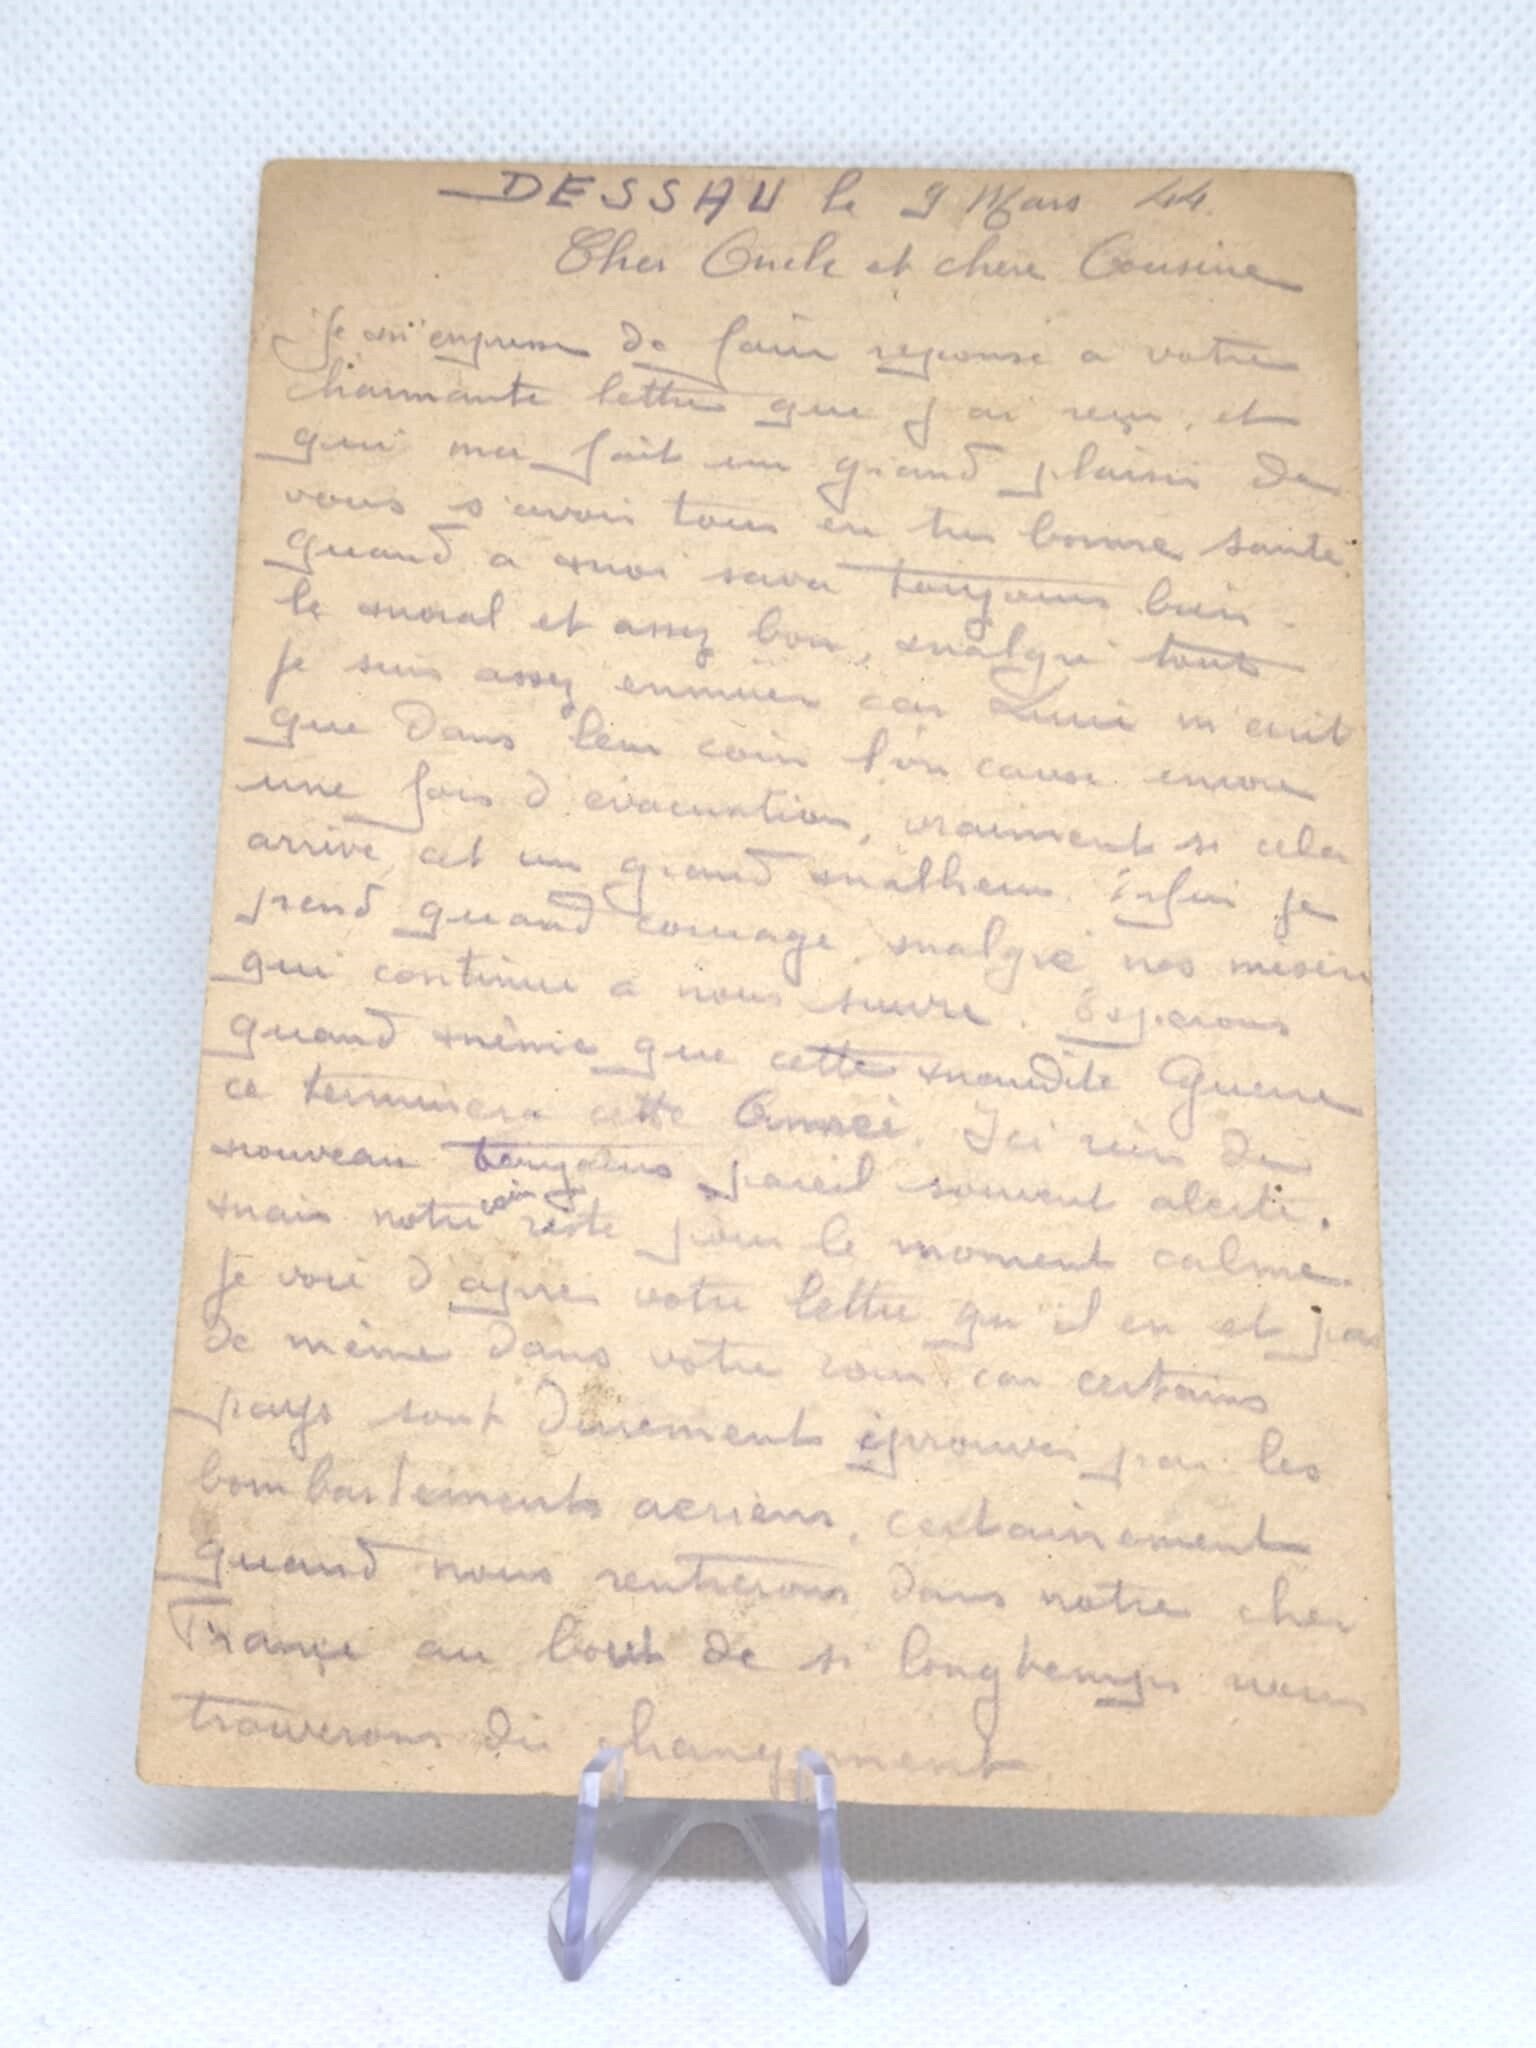 DESSAU le 9 Mars 44.
Cher Oncle et chere Cousine
Je m'empresse de faire reponse a votre
charmante lettre que j'ai reçu, et
qui ma fait un grand plaisir de
vous s'avoir tous en tres bonne sante.
quand a moi sava toujours bien.
le moral et assez bon, malgré tout
je suis assez ennuier car m'ecrit
que dans leur coin l'on cause encore
une fois d'évacuation, vraiment si cela
arrive, cet un grand malheur. Enfin je
prend quand courage, malgré nos misère
qui continue a nous suivre. Esperons
quand même que cette maudite Guerre
ce terminera cette Année. Ici rien de
nouveau toujours pareil souvent alerte.
mais notre coin reste pour le moment calme.
Je voie d'apres votre lettre qu'il en et pas
de même dans votre coin car certains
pays sont durement éprouvés par les
bombardements aeriens, certainement
quand nous rentrerons dans notre cher
Françe au bout de si longtemps nous
trouverons du changement